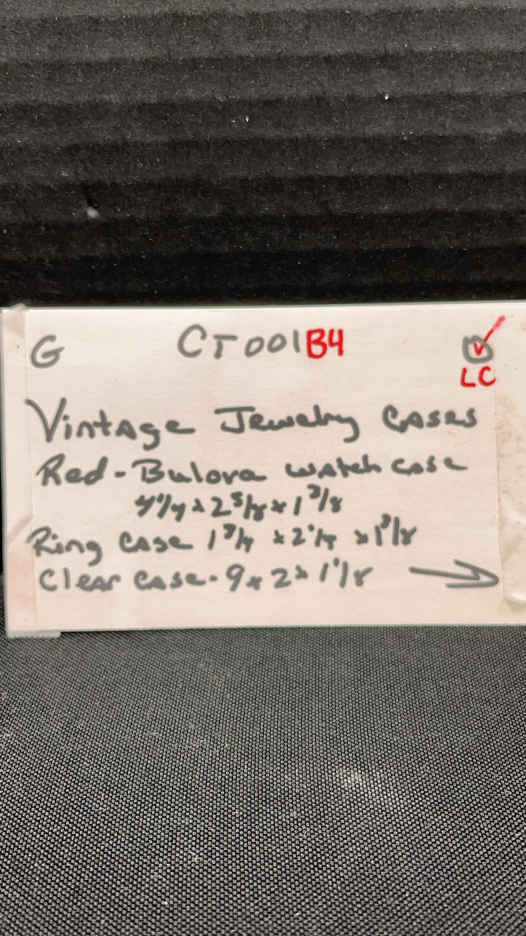 G CT001B4
LC
Vintage Jewelry Cases
Red-Bulova watch case
4 1/4 x 2 5/8 x 1 3/8
Ring case 1 3/4 x 2 1/4 x 1 3/8
Clear case - 9 x 2 x 1 1/8 →